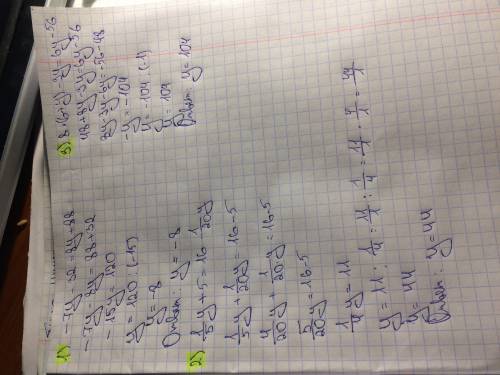 1) -7y-32=8y-88
-7y-8y=88+32
-15y=120
y=120:(-15)
y=-8
Ответ: y=-8
2) 1/5y+5=16-1/20y
1/5y+1/20y=16-5
4/20y+1/20y=16-5
5/20y=16-5
1/4y=11
y=11:1/4=11/1:1/4=11/1·4/1=44/1
y=44
Ответ: y=44
3) 8·(6+y)-3y=6y-56
48+8y-3y=6y-56
8y-3y-6y=-56-48
-y=-104
y=-104:(-1)
y=104
Ответ: y=104